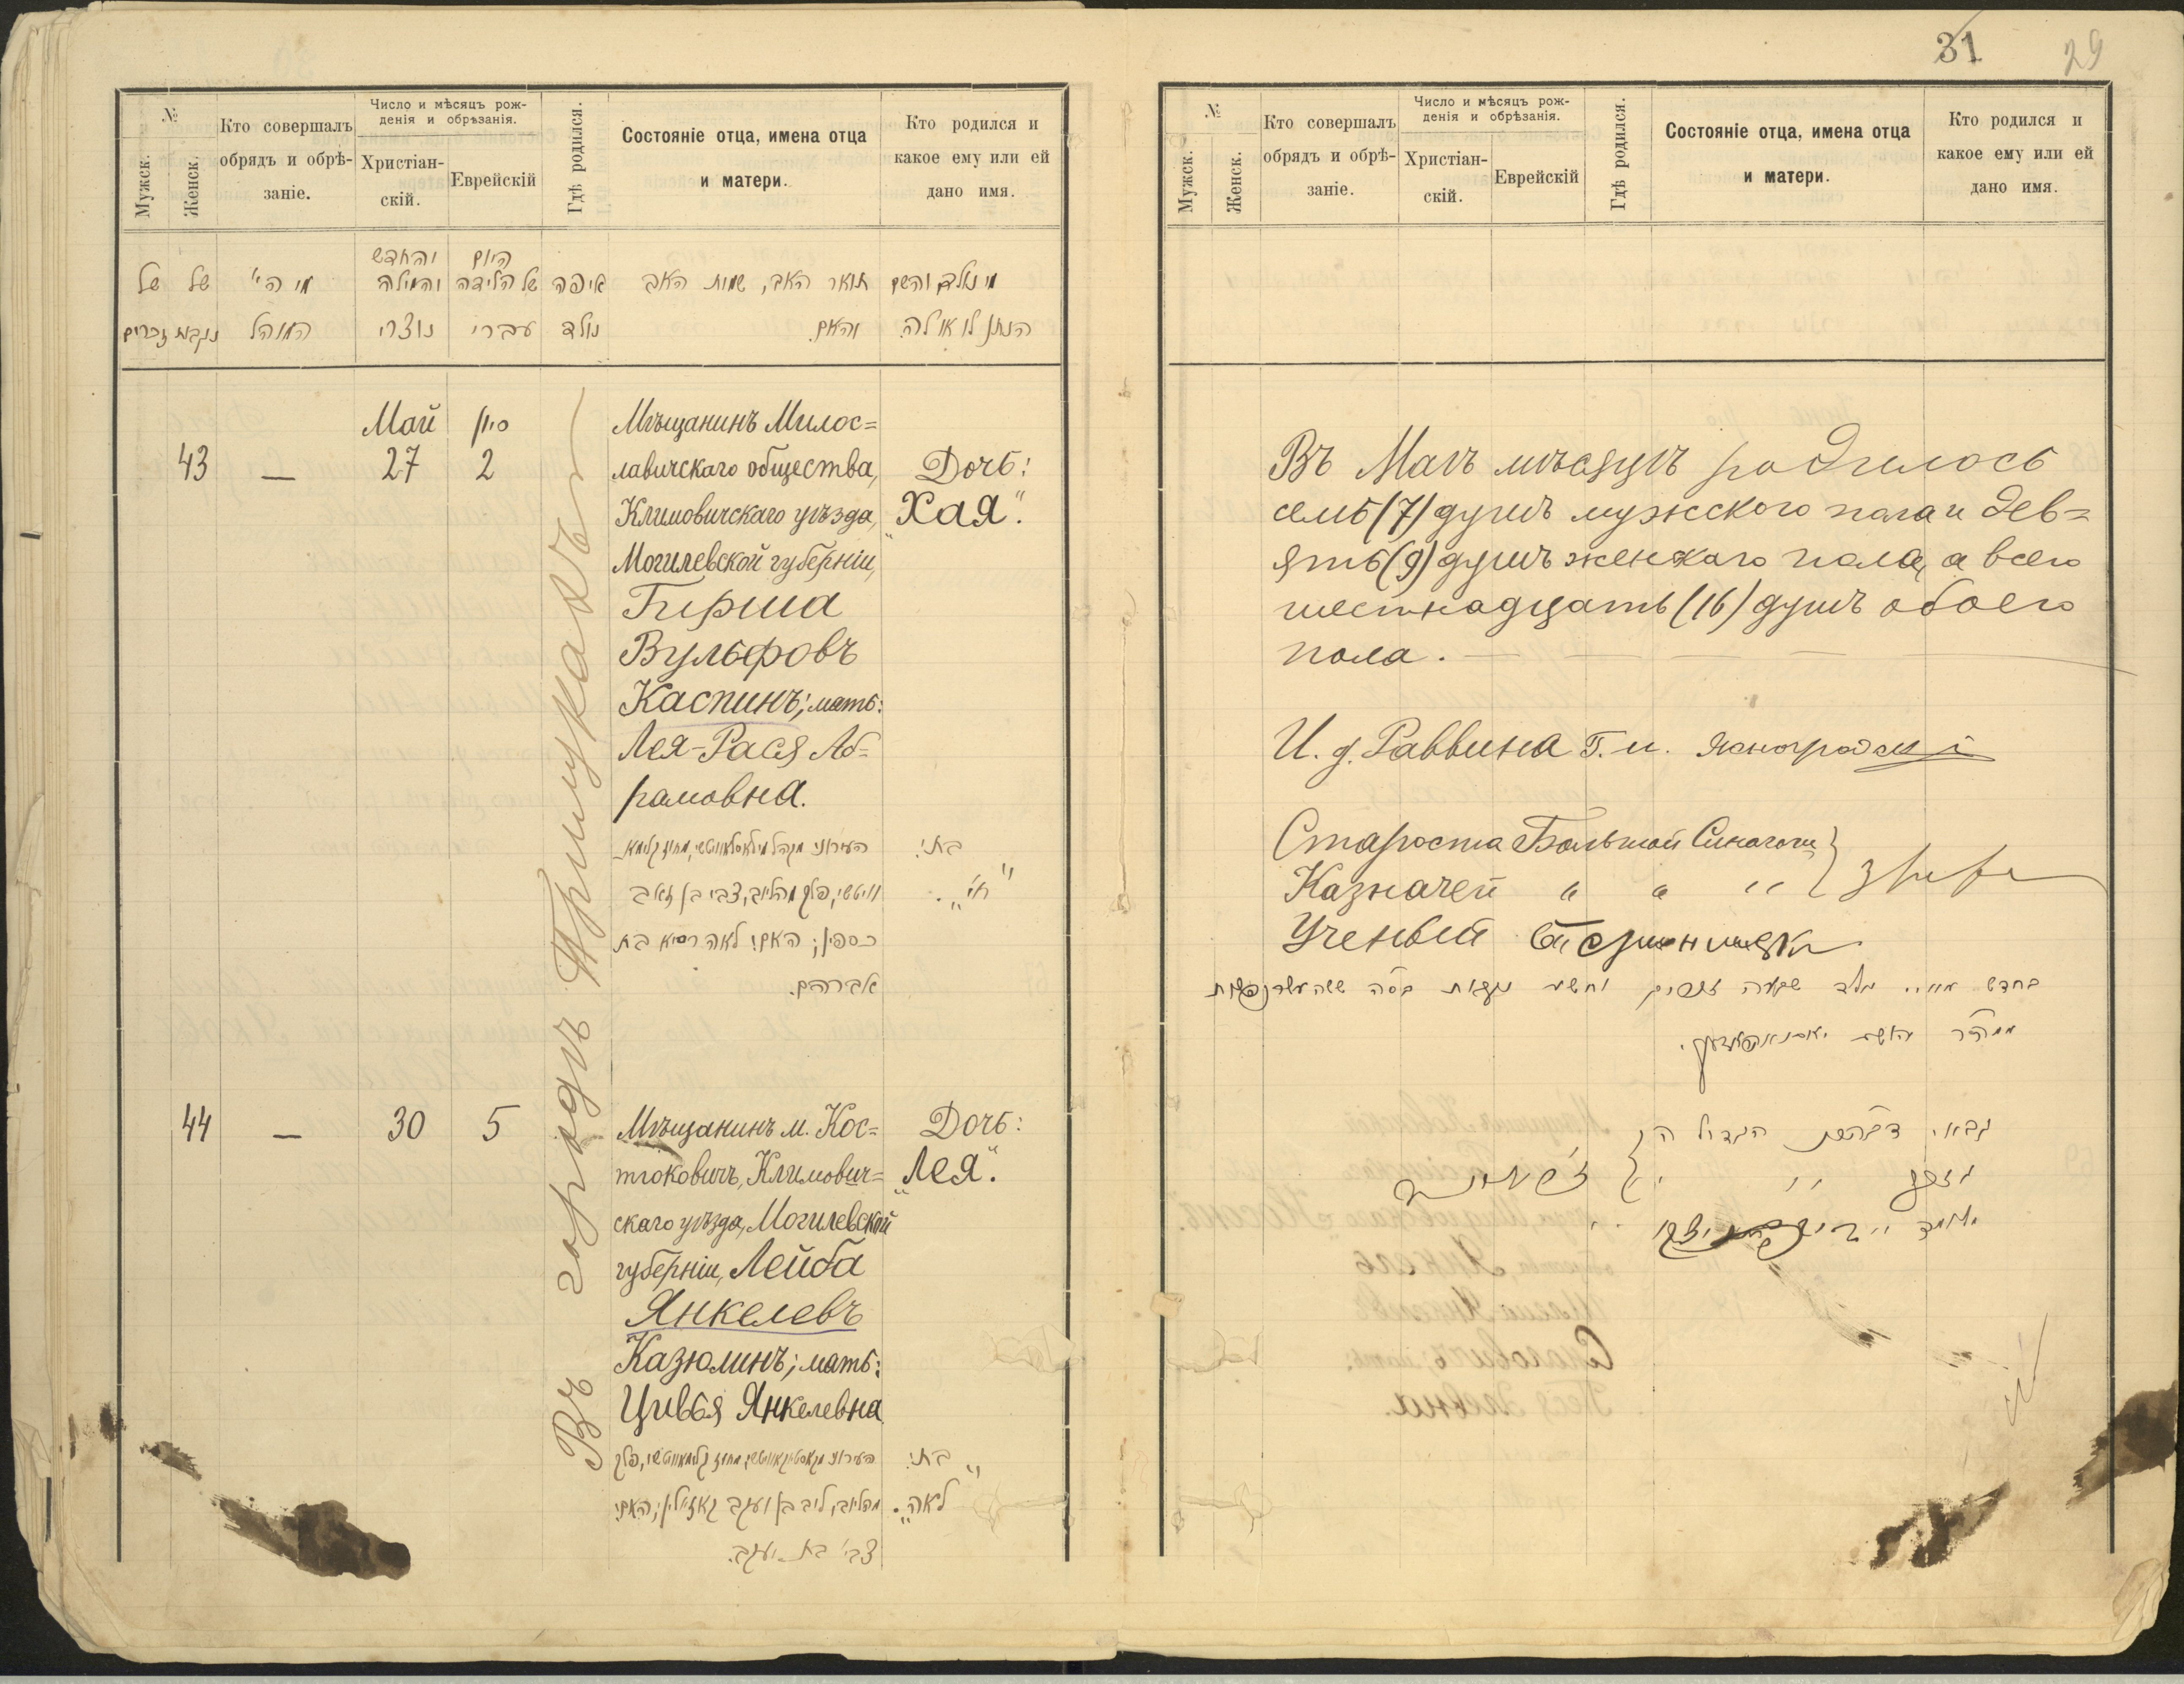 31
29
№
Мужск.
Женск.
Кто совершалъ
обрядъ и обрѣ-
заніе.
Число и мѣсяцъ рож-
денія и обрѣзанія.
Христіан-
скій.
Еврейскій
Гдѣ родился.
Состояніе отца, имена отца
и матери.
Кто родился и
какое ему или ей
дано имя.
של של מי הי' והחדש היום
והמילה של הלידה איפה תואר האב, שמות האב מי נולד והשם
זכרים נקבות המוהל נוצרי עברי נולד והאם. הנתן לו או לה.
Въ городѣ Прилукахъ
Май סיון
43 — 27 2
Мѣщанинъ Милос=
лавичскаго общества,
Климовичскаго уѣзда,
Могилевской губерніи,
Гирша
Вульфовъ
Каспинъ; мать:
Лея-Рася Аб=
рамовна.
Дочь:
„Хая".
העירוני מקהל מילאסלאוויטשי, מחוז קלימא_
וויטשי, פלך מהליוב, צבי בן זאב
כספין; האם: לאה רסיא בת
אברהם.
בת:
„חי'".
44 — 30 5
Мѣщанинъ м. Кос=
тюковичъ, Климович=
скаго уѣзда, Могилевской
губерніи, Лейба
Янкелевъ
Казюлинъ; мать:
Цивья Янкелевна
Дочь:
„Лея".
מהליוב, ליב בן יעקב קאזיולין; האם:
צבי' בת יעקב.
בת:
„לאה".
№
Мужск.
Женск.
Кто совершалъ
обрядъ и обрѣ-
заніе.
Число и мѣсяцъ рож-
денія и обрѣзанія.
Христіан-
скій.
Еврейскій
Гдѣ родился.
Состояніе отца, имена отца
и матери.
Кто родился и
какое ему или ей
дано имя.
Въ Маѣ мѣсяцѣ родилось
семь (7) душъ мужского пола и дев=
ять (9) душъ женскаго пола, а всего
шестнадцать (16) душъ обоего
пола.
И. д. Раввина Г. М. Ясногродскій
Староста Большой Синагоги
Казначей „ „ „
Ученый
בחדש מייא נולד שבעה זכרים ותשע נקבות בס"ה ששה עשר נפשות